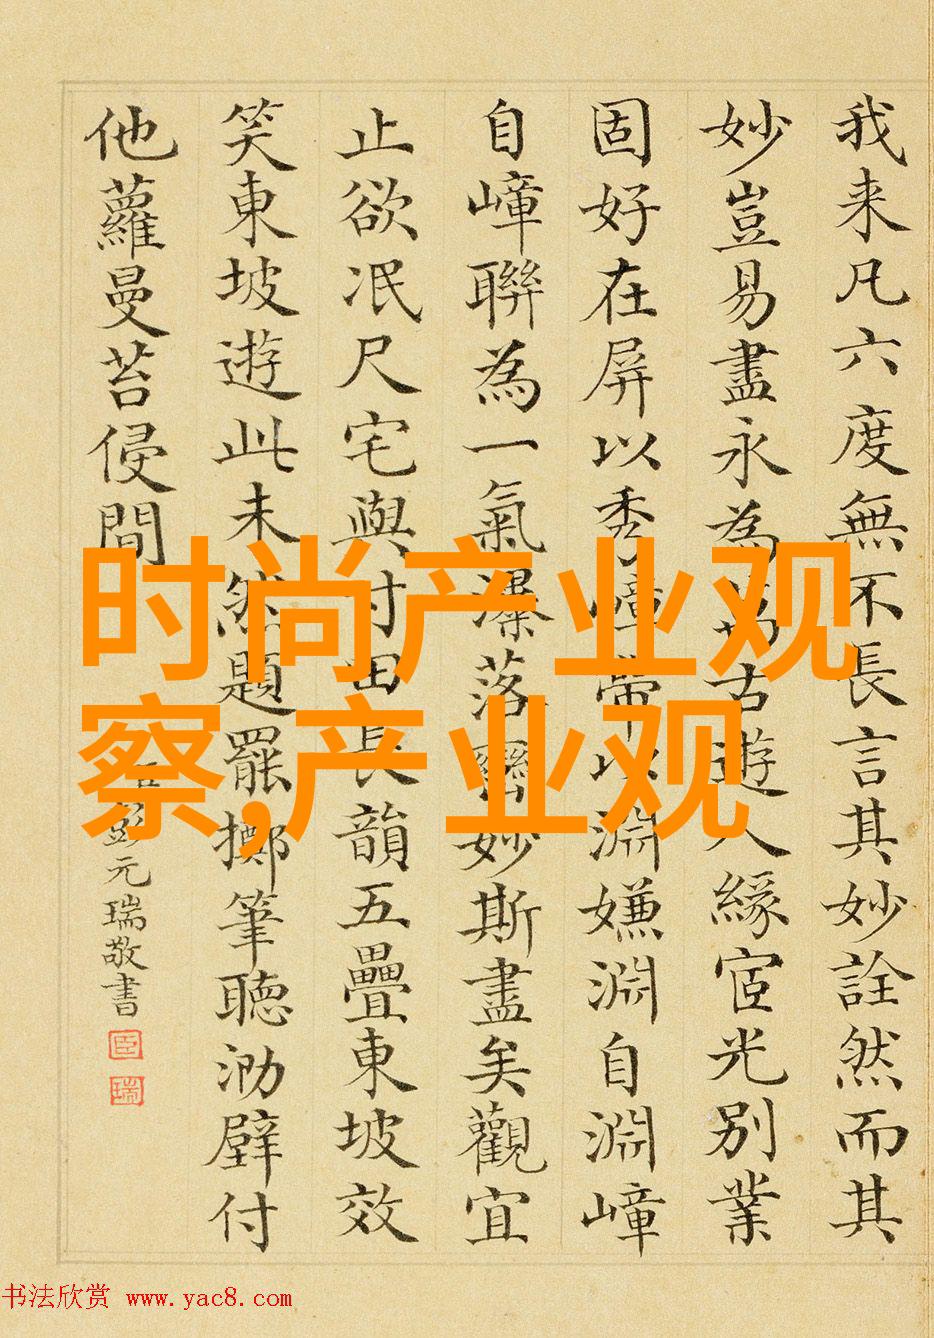 我来凡六度無不長言其妙詮然而其
妙豈易盡永為萬古遊人緣宧光別業
固好在屏以秀嶂帶以淵嫌淵自淵嶂
自嶂聯為一氣瀑落巒妙斯盡矣觀宜
止欲泯尺宅與寸田長韻五疊東坡效
笑東坡遊此未然題罷擲筆聽泐壁付
他蘿曼苔侵間
臣彭元瑞敬書
臣
瑞
时尚产业观
察,产业观
书法欣赏 www.yac8.com